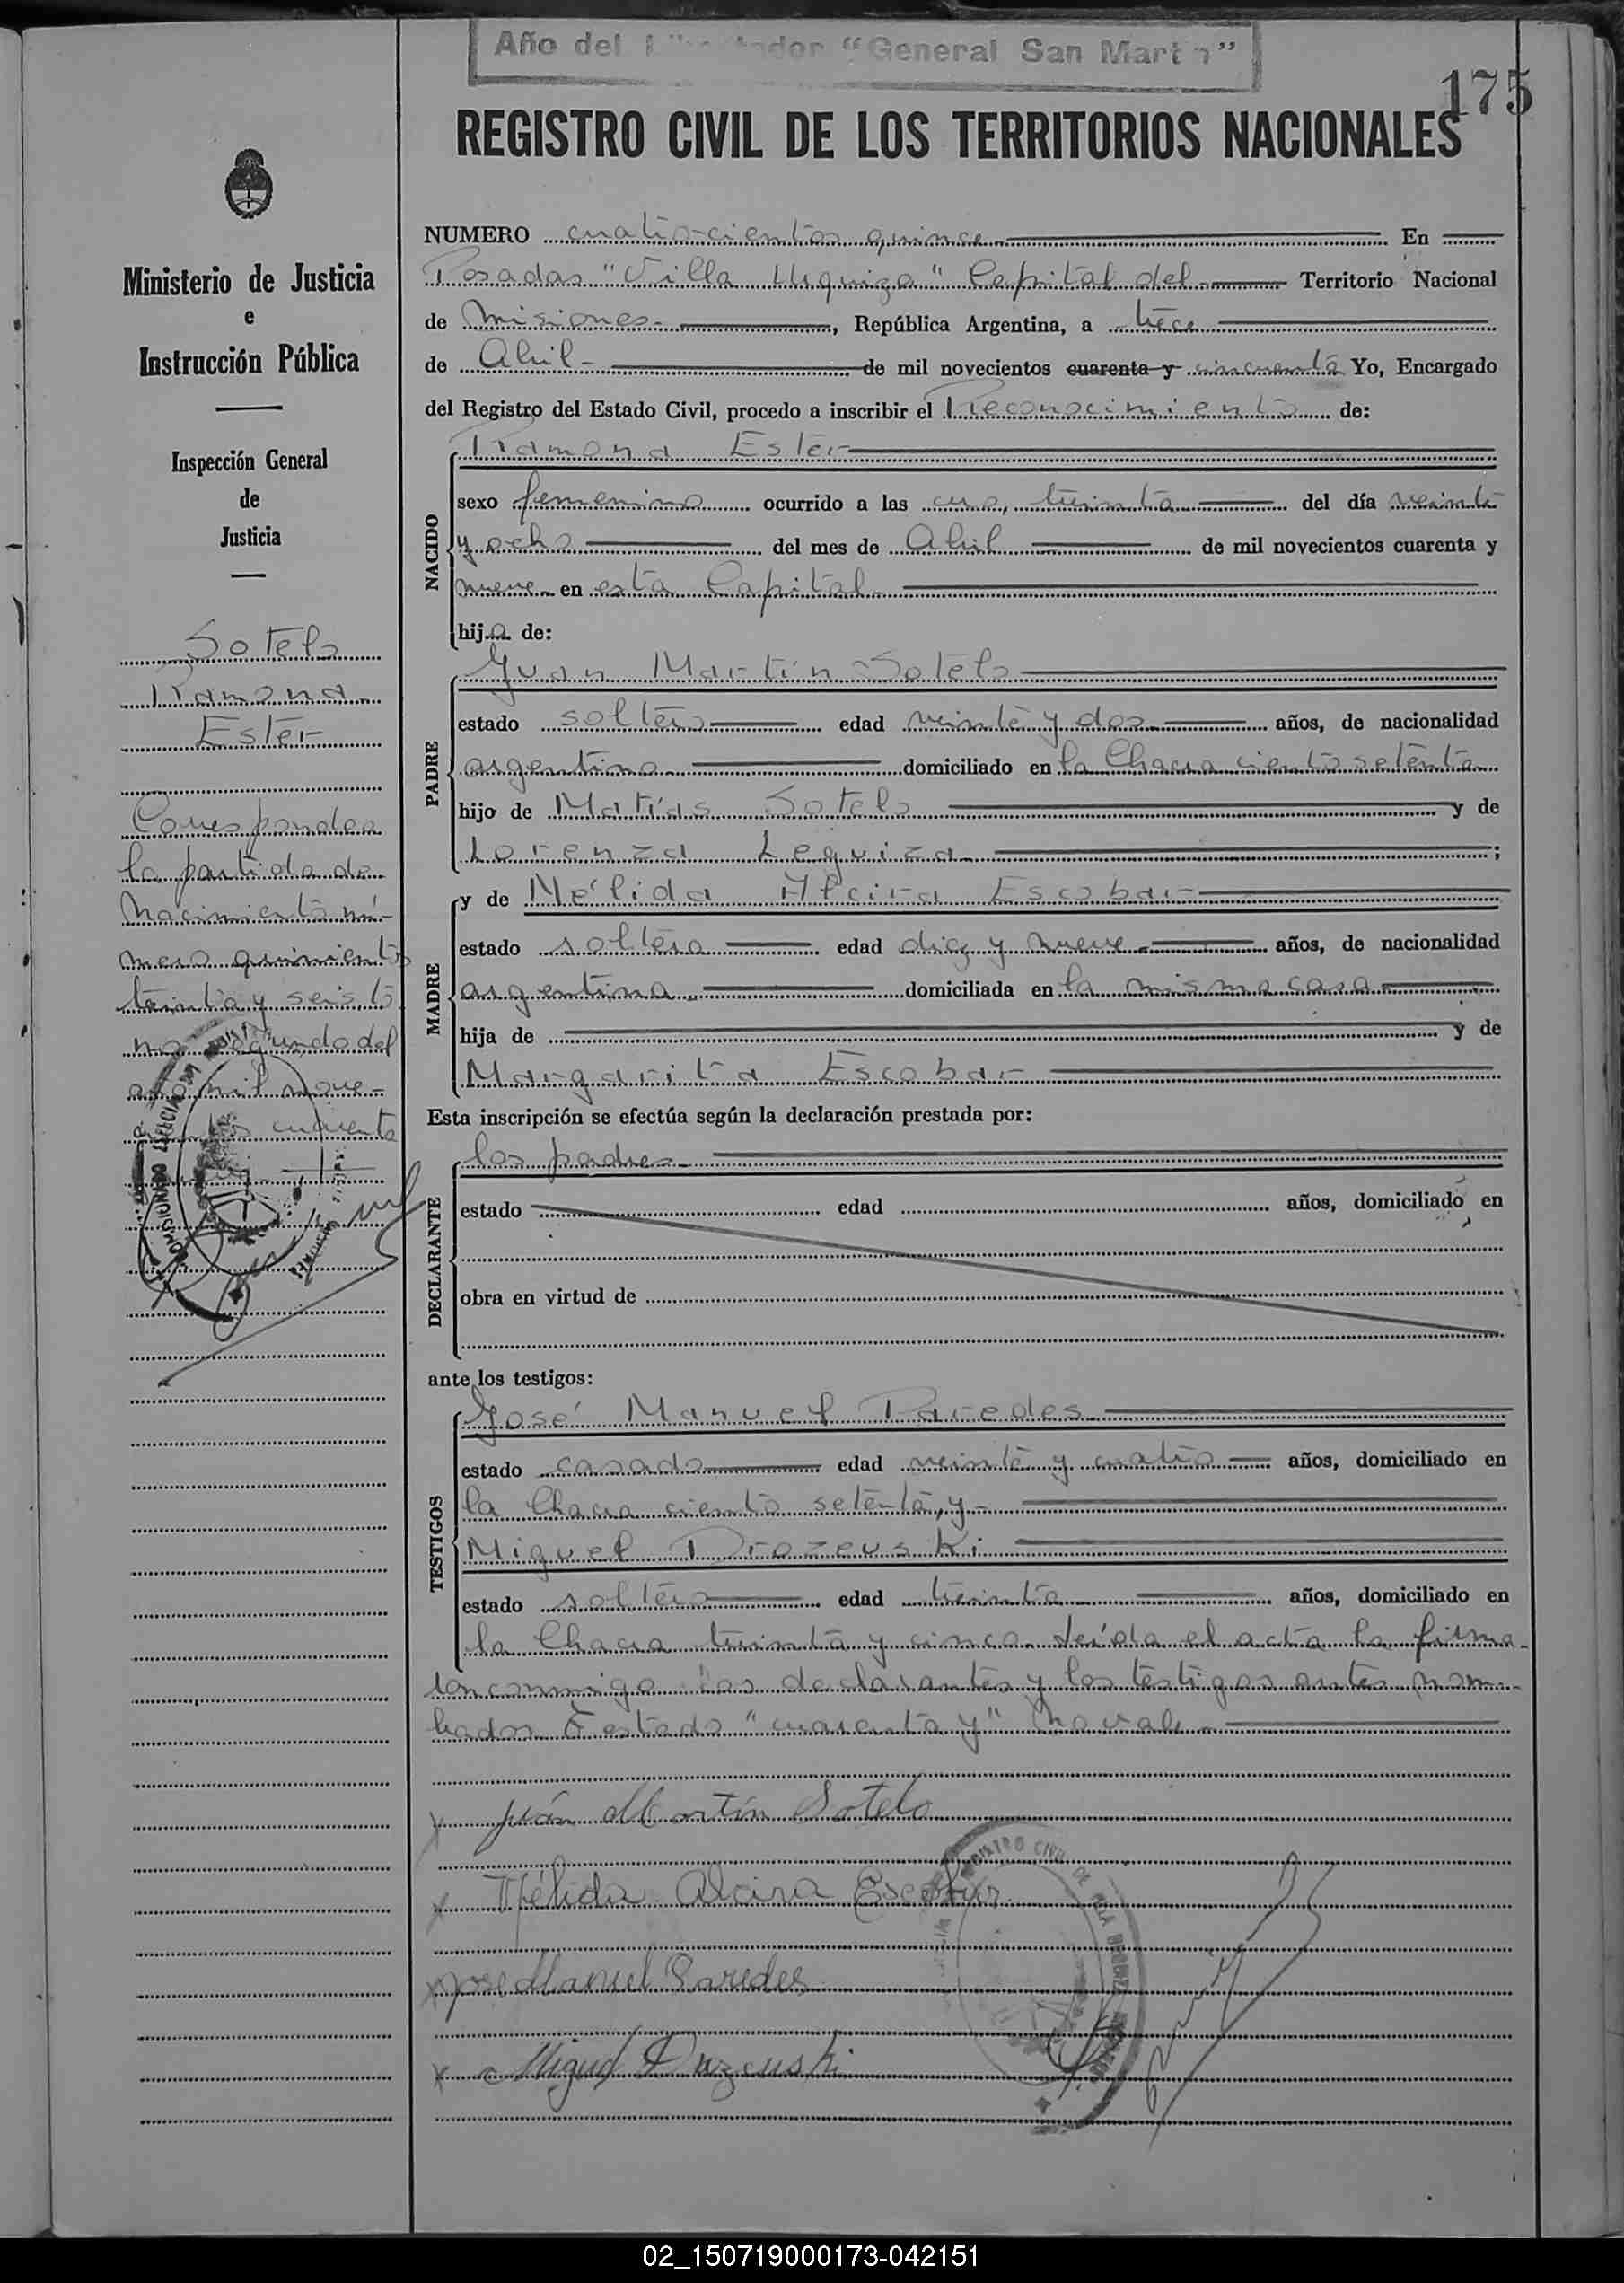 Año del Libertador “General San Martín”
175
REGISTRO CIVIL DE LOS TERRITORIOS NACIONALES
Ministerio de Justicia
e
Instrucción Pública
Inspección General
de
Justicia
Sotelo
Ramona
Ester
Corresponde a
la partida de
Nacimiento nú-
mero quinientos
treinta y seis, to
mo segundo del
año mil nove-
cuarenta
NUMERO cuatrocientos quince En
Posadas "Villa Urquiza" Capital del Territorio Nacional
de Misiones, República Argentina, a trece
de Abril de mil novecientos cuarenta y cincuenta Yo, Encargado
del Registro del Estado Civil, procedo a inscribir el Reconocimiento de:
NACIDO
Ramona Ester
sexo femenino ocurrido a las una, treinta del día veinte
y ocho del mes de Abril de mil novecientos cuarenta y
nueve en esta Capital
hija de:
PADRE
Juan Martín Sotelo
estado soltero edad veinte y dos años, de nacionalidad
argentino domiciliado en la Chacra ciento setenta
hijo de Matías Sotelo y de
Lorenza Leguiza;
MADRE
y de Mélida Alcira Escobar
estado soltera edad diez y nueve años, de nacionalidad
argentina domiciliada en la misma casa
hija de y de
Margarita Escobar
Esta inscripción se efectúa según la declaración prestada por:
DECLARANTE
los padres
estado edad años, domiciliado en
obra en virtud de
ante los testigos:
TESTIGOS
José Manuel Paredes
estado casado edad veinte y cuatro años, domiciliado en
la Chacra ciento setenta, y
Miguel Drozeuski
estado soltero edad treinta años, domiciliado en
la Chacra treinta y cinco. Leída el acta la firma-
ron conmigo los declarantes y los testigos antes nom-
brados. Testado "cuarenta y" No vale
Juan Martín Sotelo
Mélida Alcira Escobar
José Manuel Paredes
Miguel Drozeuski
02_150719000173-042151